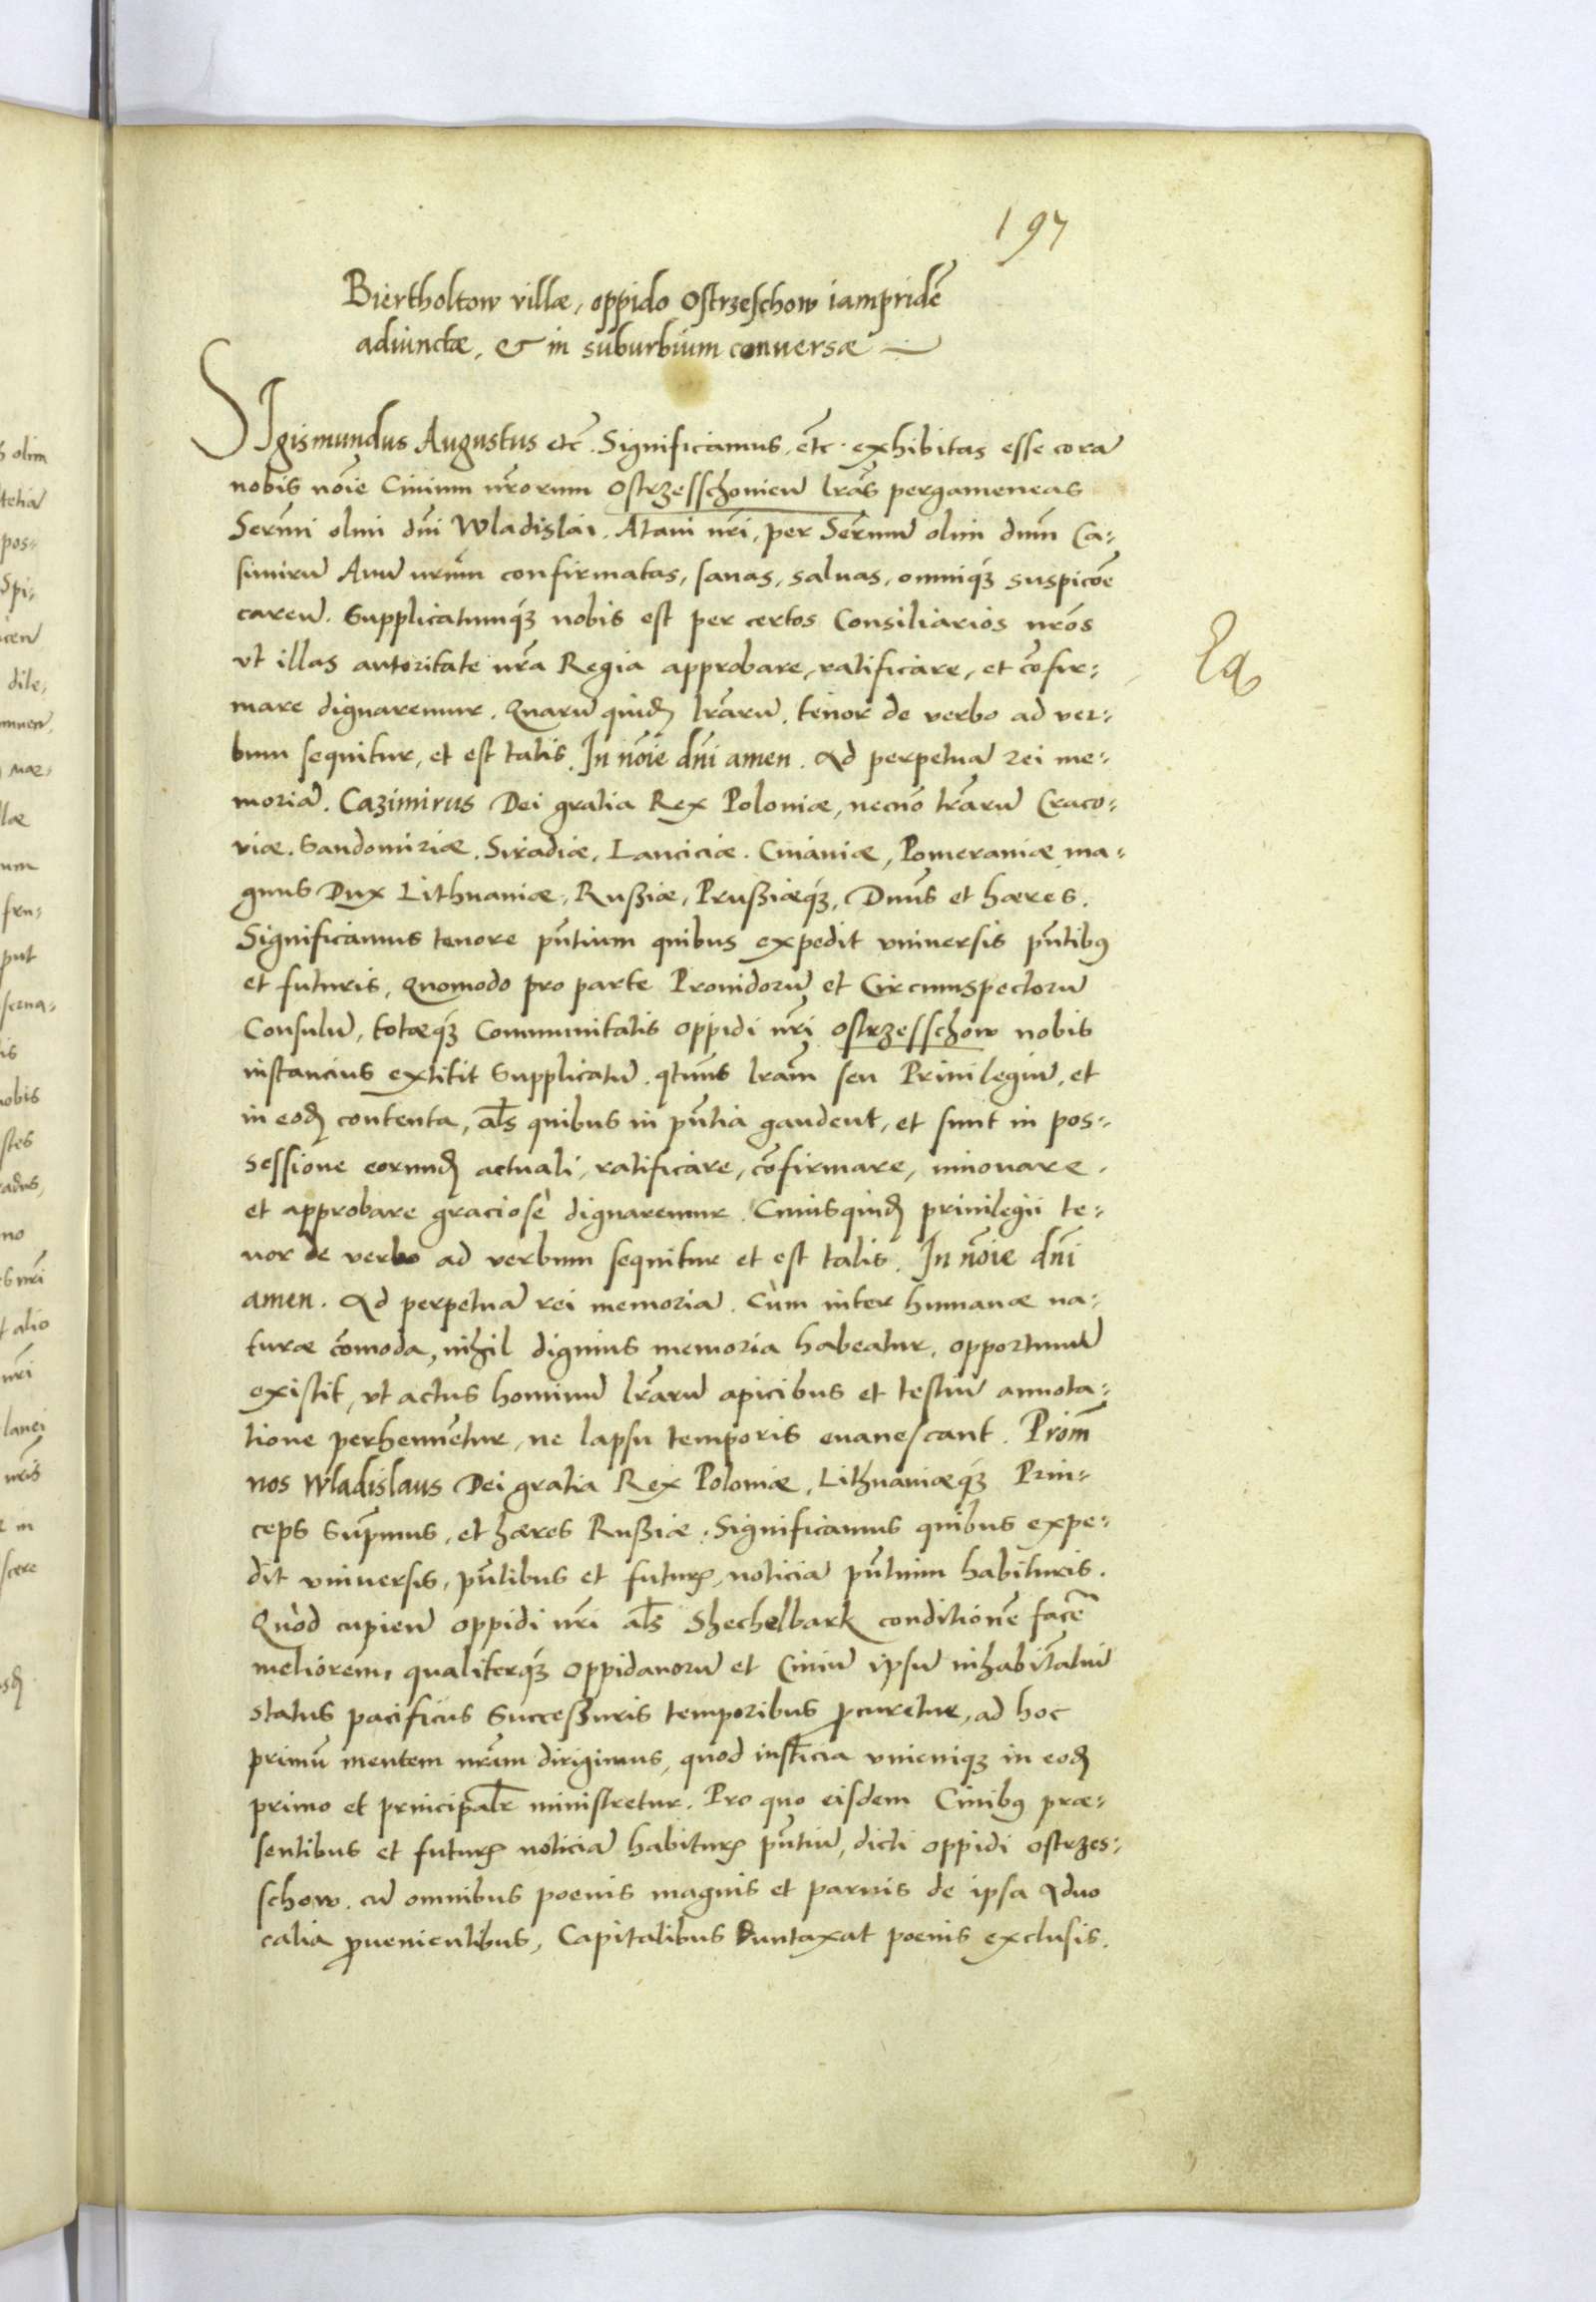 197
Biertholtow villæ, oppido Ostrzeschow iampridē
adiunctæ, & in suburbium conuersæ
SIgismundus Augustus etc̄. Significamus, etc̄. exhibitas esse corā
nobis nōie Ciuium nr̄orum Ostrzesschouien̄ lrās pergameneas
Serm̄i olim dn̄i Wladislai, Ataui nr̄i, per Serm̄um olim dn̄m Ca-
simirū Auū nr̄um confirmatas, sanas, saluas, omniq́ꝫ suspicōe
caren̄. Supplicatumq́ꝫ nobis est per certos Consiliarios nr̄os
vt illas autoritate nr̄a Regia approbare, ratificare, et cōfir-
mare dignaremur. Quarū quidꝫ lrārū, tenor de verbo ad ver-
bum sequitur, et est talis. In nōie dn̄i amen. Ad perpetuā rei me-
moriā. Cazimirus Dei gratia Rex Poloniæ, necnō trārū Craco-
viæ, Sandomiriæ, Siradiæ, Lanciciæ, Cuiauiæ, Pomeraniæ, ma-
gnus Dux Lithuaniæ, Rußiæ, Prußiæq́ꝫ, Dnūs et hæres.
Significamus tenore pn̄tium quibus expedit vniuersis pn̄tibꝰ
et futuris, Quomodo pro parte Prouidorū et Circumspectorū
Consulū, totæq́ꝫ Communitatis oppidi nr̄i Ostrzesschow nobis
instancius extitit Supplicatū, qtn̄us lrām seu Priuilegiū, et
in eodꝫ contenta, als̄ quibus in pn̄tia gaudent, et sunt in pos-
sessione eorundꝫ actuali, ratificare, cōfirmare, innouare,
et approbare graciosè dignaremur. Cuiusquidꝫ priuilegii te-
nor de verbo ad verbum sequitur et est talis. In nōie dn̄i
amen. Ad perpetuā rei memoriā. Cùm inter humanæ na-
turæ cōmoda, nihil dignius memoria habeatur, opportunū
existit, vt actus hominū lrārū apicibus et testiū annota-
tione perhennētur, ne lapsu temporis euanescant. Proin̄
nos Wladislaus Dei gratia Rex Poloniæ, Lithuaniæq́ꝫ Prin-
ceps Sup̄mus, et hæres Rußiæ. Significamus quibus expe-
dit vniuersis, pn̄tibus et futurꝭ, noticiā pn̄tium habituris.
Quòd cupien̄ oppidi nr̄i als̄ Shechelbark conditionē facē
meliorem, qualiterq́ꝫ oppidanorū et Ciuiū ipsū inhabitātiū
status pacificus Succeßuris temporibus ꝓcuretur, ad hoc
primū mentem nr̄am dirigimus, quod iusticia vnicuiqꝫ in eodꝫ
primo et principalr̄ ministretur. Pro quo eisdem Ciuibꝰ præ-
sentibus et futurꝭ noticiā habiturꝭ pn̄tiū, dicti oppidi Ostrzes-
schow, cū omnibus poenis magnis et paruis de ipsa Aduo
catia ꝓuenientibus, Capitalibus duntaxat poenis exclusis.